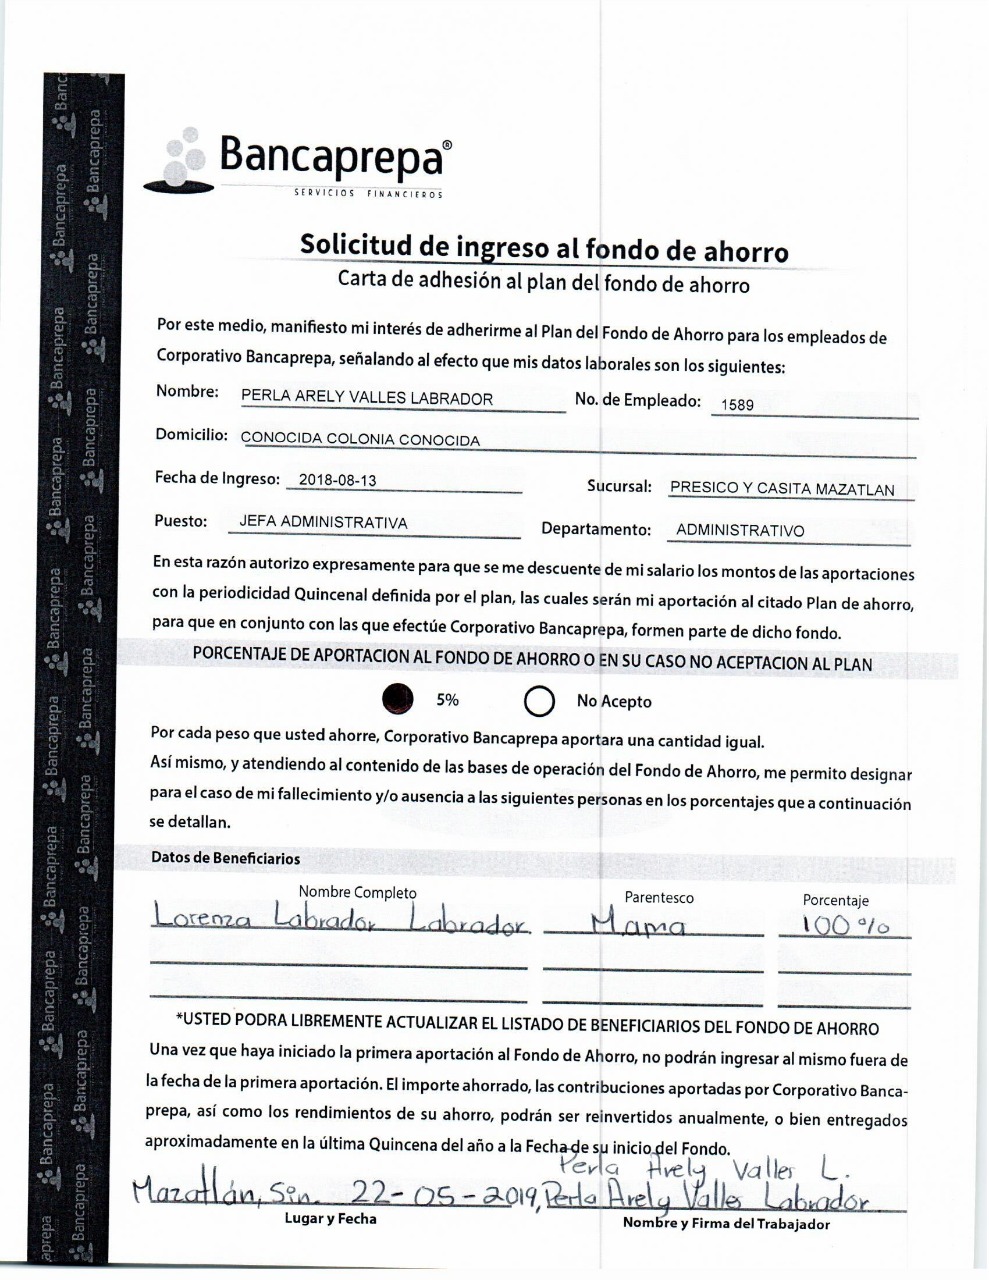 Bancaprepa®
SERVICIOS FINANCIEROS
Solicitud de ingreso al fondo de ahorro
Carta de adhesión al plan del fondo de ahorro
Por este medio, manifiesto mi interés de adherirme al Plan del Fondo de Ahorro para los empleados de
Corporativo Bancaprepa, señalando al efecto que mis datos laborales son los siguientes:
Nombre: PERLA ARELY VALLES LABRADOR No. de Empleado: 1589
Domicilio: CONOCIDA COLONIA CONOCIDA
Fecha de Ingreso: 2018-08-13 Sucursal: PRESICO Y CASITA MAZATLAN
Puesto: JEFA ADMINISTRATIVA Departamento: ADMINISTRATIVO
En esta razón autorizo expresamente para que se me descuente de mi salario los montos de las aportaciones
con la periodicidad Quincenal definida por el plan, las cuales serán mi aportación al citado Plan de ahorro,
para que en conjunto con las que efectúe Corporativo Bancaprepa, formen parte de dicho fondo.
PORCENTAJE DE APORTACION AL FONDO DE AHORRO O EN SU CASO NO ACEPTACION AL PLAN
5% No Acepto
Por cada peso que usted ahorre, Corporativo Bancaprepa aportara una cantidad igual.
Así mismo, y atendiendo al contenido de las bases de operación del Fondo de Ahorro, me permito designar
para el caso de mi fallecimiento y/o ausencia a las siguientes personas en los porcentajes que a continuación
se detallan.
Datos de Beneficiarios
Nombre Completo Parentesco Porcentaje
Lorenza Labrador Labrador Mama 100%
*USTED PODRA LIBREMENTE ACTUALIZAR EL LISTADO DE BENEFICIARIOS DEL FONDO DE AHORRO
Una vez que haya iniciado la primera aportación al Fondo de Ahorro, no podrán ingresar al mismo fuera de
la fecha de la primera aportación. El importe ahorrado, las contribuciones aportadas por Corporativo Banca-
prepa, así como los rendimientos de su ahorro, podrán ser reinvertidos anualmente, o bien entregados
aproximadamente en la última Quincena del año a la Fecha de su inicio del Fondo.
Perla Arely Valles L.
Mazatlán, Sin. 22-05-2019, Perla Arely Valles Labrador
Lugar y Fecha Nombre y Firma del Trabajador